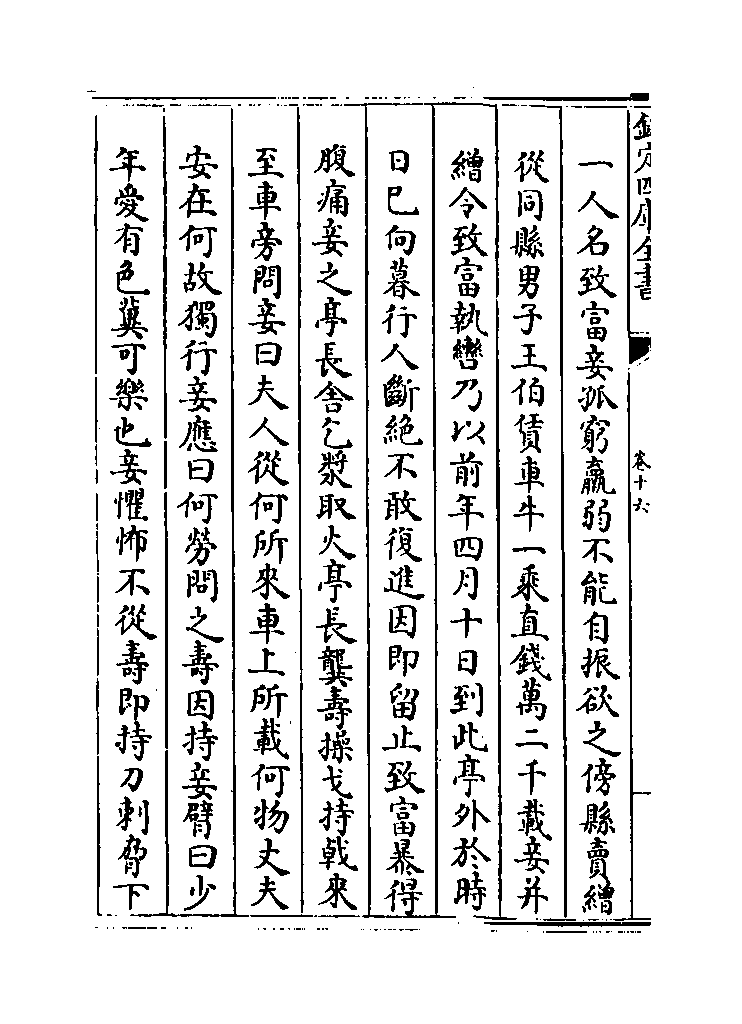 欽定四庫全書
卷十六
一人名致富妾孤窮羸弱不能自振欲之傍縣賣繒
從同縣男子王伯賃車牛一乘直錢萬二千載妾并
繒令致富執轡乃以前年四月十日到此亭外於時
日已向暮行人斷絕不敢復進因即留止致富暴得
腹痛妾之亭長舍乞漿取火亭長龔壽操戈持戟來
至車旁問妾曰夫人從何所來車上所載何物丈夫
安在何故獨行妾應曰何勞問之壽因持妾臂曰少
年愛有色冀可樂也妾懼怖不從壽即持刀刺脅下